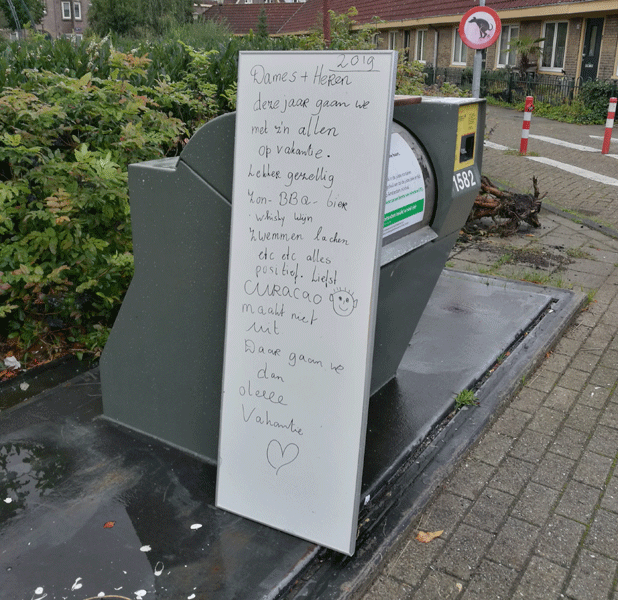 2019
Dames + Heren
deze jaar gaan we
met z'n allen
op vakantie.
Lekker gezellig
Zon - BBQ - bier
whisky wijn
Zwemmen lachen
etc etc alles
positief. Liefst
CURACAO
maakt niet
uit
Daar gaan we
dan
oleeee
Vakantie
1582